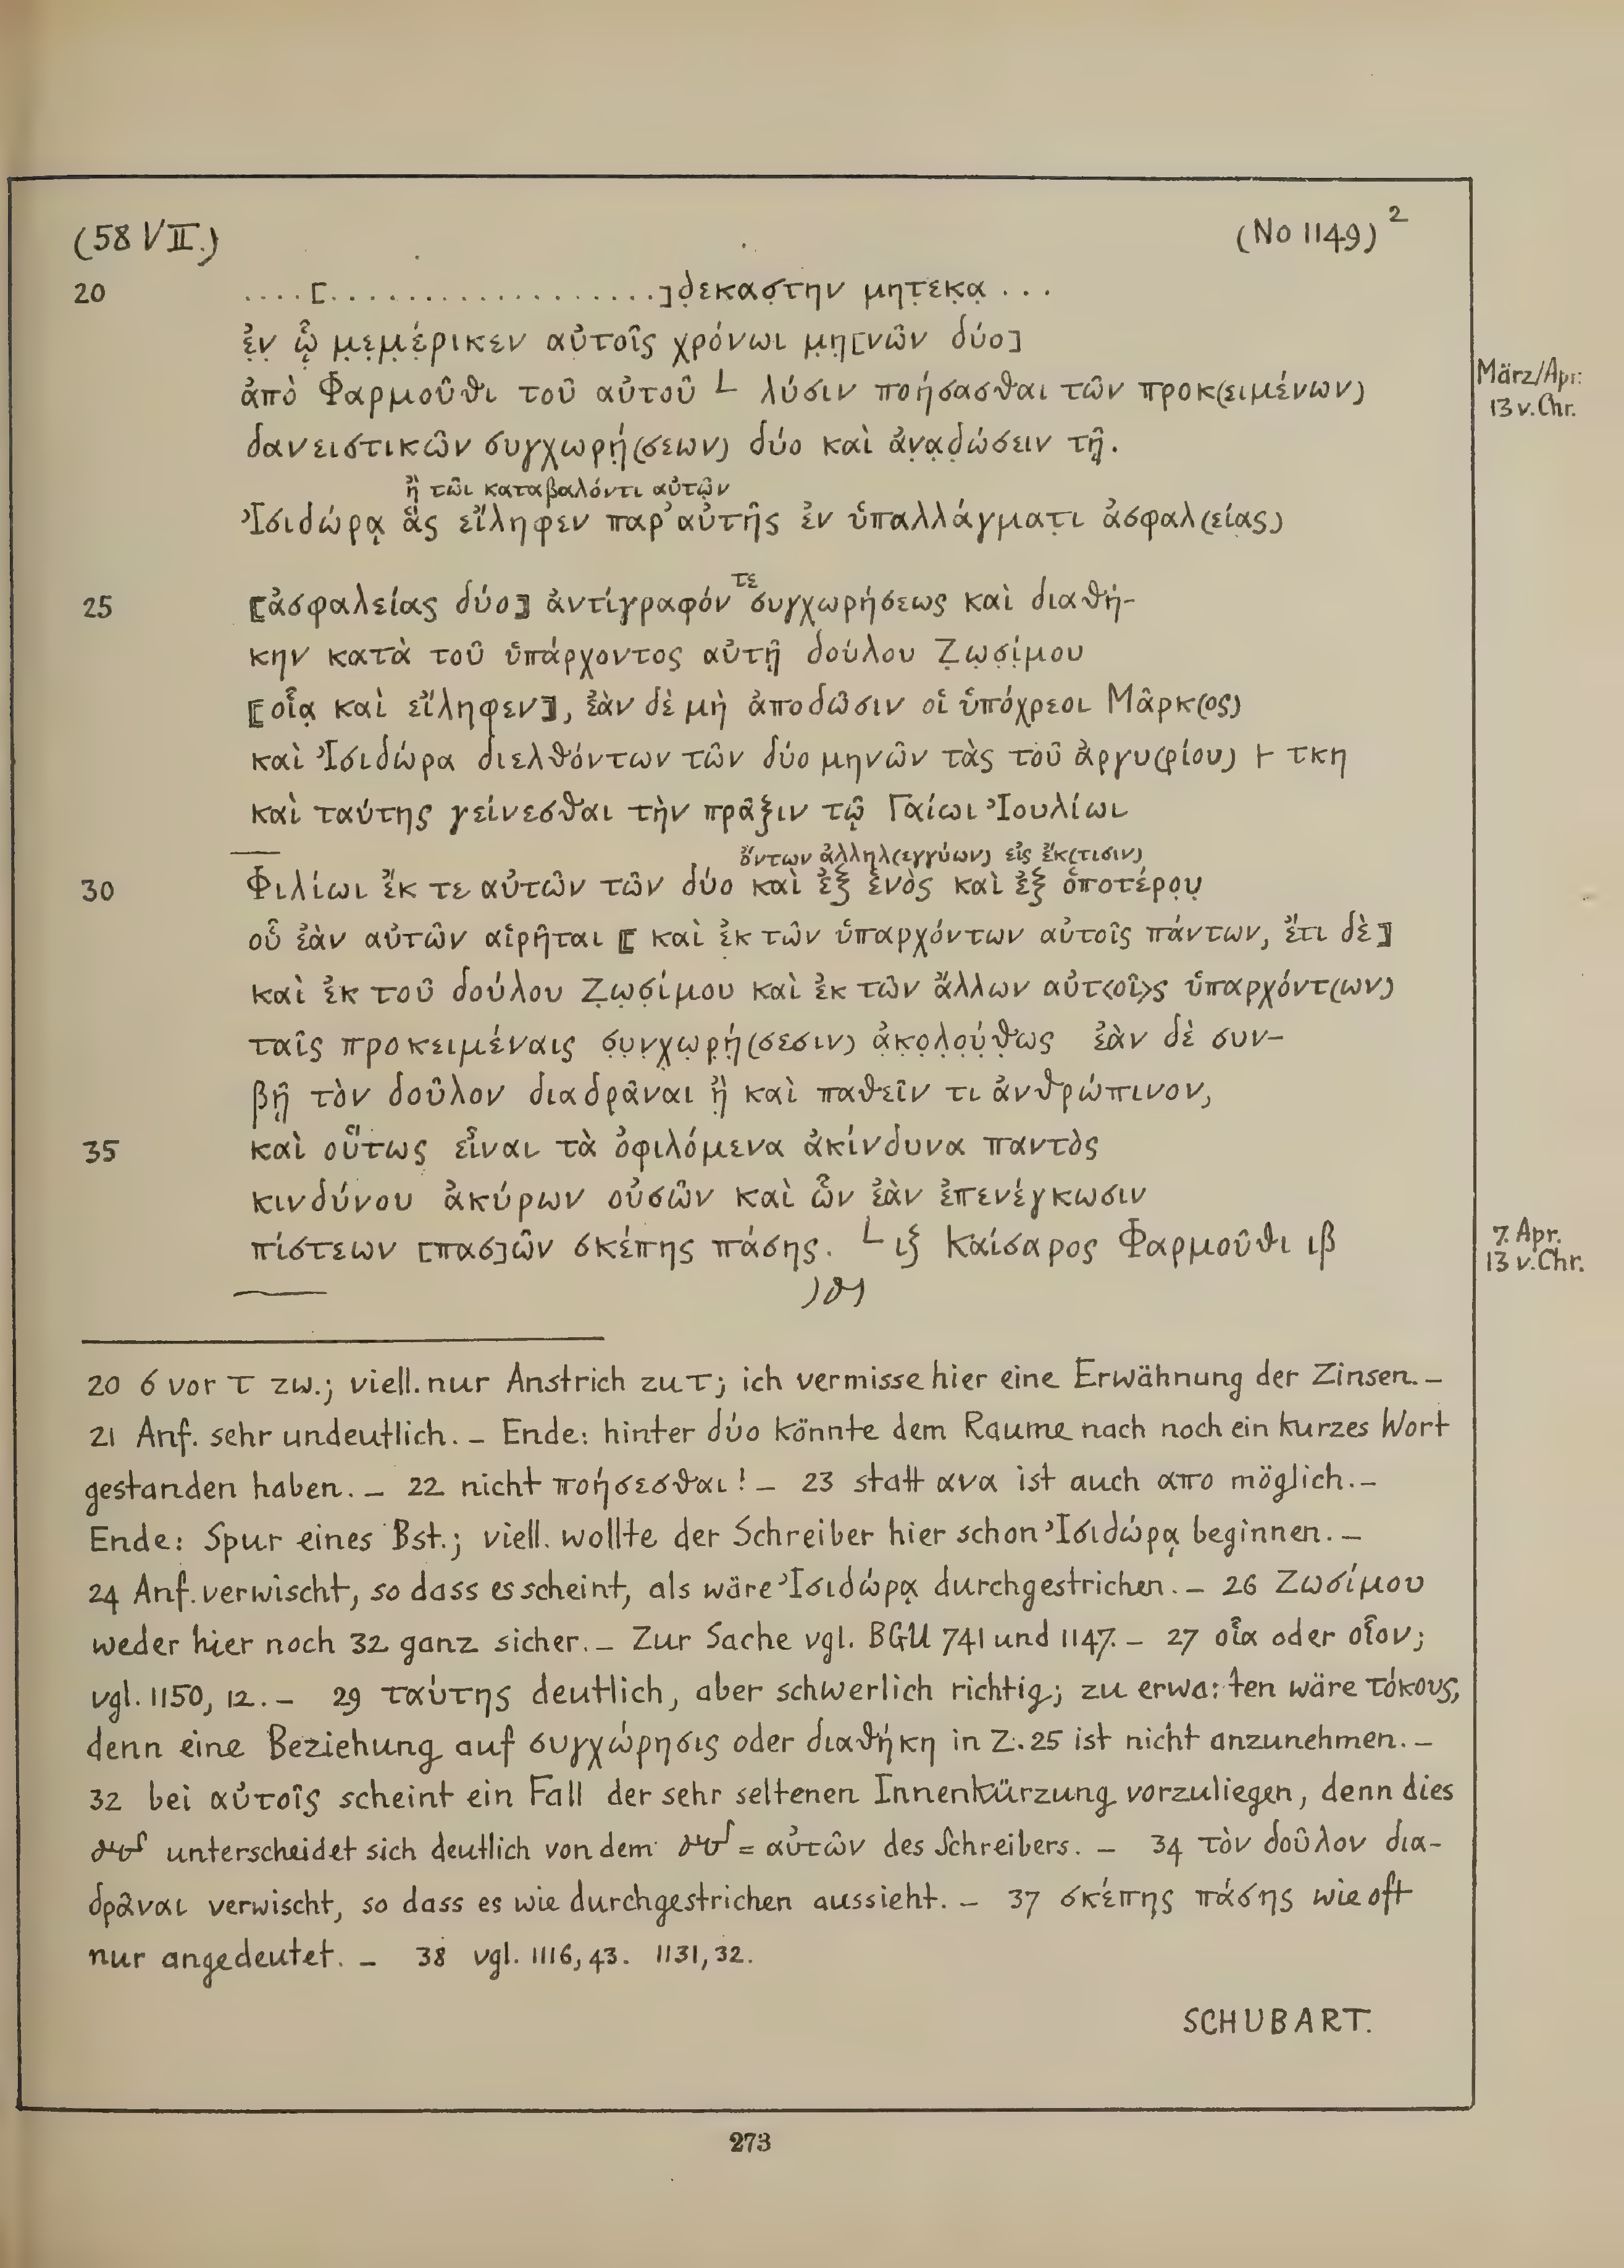 (58 VII.) (No 1149)²
20 ....[...................]δ̣εκασ̣την μητ̣εκ̣α̣ ...
ἐ̣ν̣ ᾧ̣ μ̣ε̣μ̣έ̣ρικεν αὐ̣τοῖς χρόνωι μ̣η̣[νῶν δύο]
ἀπὸ Φαρμοῦθι τοῦ αὐτοῦ L λύσιν ποήσασθαι τῶν προκ(ειμένων) März/Apr:
13 v. Chr.
δανειστικῶν συγχωρή̣(σεων) δύο καὶ ἀν̣α̣δ̣ώσειν τῇ.
ἢ τῶι καταβαλόντι αὐτῶ̣ν
Ἰσιδώρᾳ ἃς εἴληφεν παρ' αὐτῆς ἐν ὑπαλλάγματ̣ι ἀσφαλ(είας)
τε
25 ⟦ἀσφαλείας δύο⟧ ἀντίγραφόν συγχωρήσεως καὶ διαθή-
κην κατὰ τοῦ ὑπάρχοντος αὐτῇ δούλου Ζ̣ω̣σ̣ί̣μου
⟦οἷα̣ καὶ εἴληφεν⟧, ἐὰν δὲ μὴ ἀποδῶσιν οἱ ὑπόχρεοι Μᾶρκ(ος)
καὶ Ἰσιδώρα διελθόντων τῶν δύο μηνῶν τὰς τοῦ ἀργυ(ρίου) ⊢ τκη
καὶ ταύτης γείνεσθαι τὴν πρᾶξιν τῷ Γαίωι Ἰουλίωι
ὄντων ἀλληλ(εγγύων) εἰς ἔκ(τισιν)
30 Φιλίωι ἔκ τε αὐτῶν τῶν δύο καὶ ἐξ ἑνὸς καὶ ἐξ ὁποτέρο̣υ̣
οὗ ἐὰν αὐτῶν αἱρῆται ⟦ καὶ ἐκ τῶν ὑπαρχόντων αὐτοῖς πάντων, ἔτι δὲ⟧
καὶ ἐκ τοῦ δούλου Ζ̣ω̣σ̣ίμου καὶ ἐκ τῶν ἄλλων αὐτ<οῖ>ς ὑπαρχόντ(ων)
ταῖς προκειμέναις σ̣υ̣ν̣χ̣ω̣ρ̣ή̣(σεσιν) ἀ̣κ̣ο̣λ̣ο̣ύ̣θ̣ως ἐὰν δὲ συν-
βῇ τὸν δοῦλον διαδρᾶναι ἢ̣ καὶ παθεῖν τι ἀνθρώπινον,
35 καὶ οὕτως εἶναι τὰ ὀφιλόμενα ἀκίνδυνα παντὸς
κινδύνου ἀκύρων οὐσῶν καὶ ὧν ἐὰν ἐπενέγκωσιν
πίστεων [πασ]ῶν σκέπης πάσης. L ιξ Καίσαρος Φαρμοῦθι ιβ 7. Apr.
13 v. Chr.
20 σ vor τ zw.; viell. nur Anstrich zu τ; ich vermisse hier eine Erwähnung der Zinsen. –
21 Anf. sehr undeutlich. – Ende: hinter δύο könnte dem Raume nach noch ein kurzes Wort
gestanden haben. – 22 nicht ποήσεσθαι! – 23 statt ανα ist auch απο möglich. –
Ende: Spur eines Bst.; viell. wollte der Schreiber hier schon Ἰσιδώρᾳ beginnen. –
24 Anf. verwischt, so dass es scheint, als wäre Ἰσιδώρᾳ durchgestrichen. – 26 Ζωσίμου
weder hier noch 32 ganz sicher. – Zur Sache vgl. BGU 741 und 1147. – 27 οἷα oder οἷον;
vgl. 1150, 12. – 29 ταύτης deutlich, aber schwerlich richtig; zu erwarten wäre τόκους,
denn eine Beziehung auf συγχώρησις oder διαθήκη in Z. 25 ist nicht anzunehmen. –
32 bei αὐτοῖς scheint ein Fall der sehr seltenen Innenkürzung vorzuliegen, denn dies
unterscheidet sich deutlich von dem = αὐτῶν des Schreibers. – 34 τὸν δοῦλον δια-
δρᾶναι verwischt, so dass es wie durchgestrichen aussieht. – 37 σκέπης πάσης wie oft
nur angedeutet. – 38 vgl. 1116, 43. 1131, 32.
SCHUBART.
273